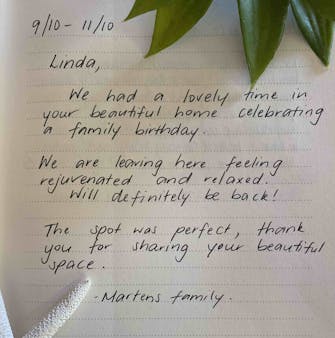 9/10 - 11/10
Linda,
We had a lovely time in
your beautiful home celebrating
a family birthday.
We are leaving here feeling
rejuvenated and relaxed.
Will definitely be back!
The spot was perfect, thank
you for sharing your beautiful
space.
- Martens family.